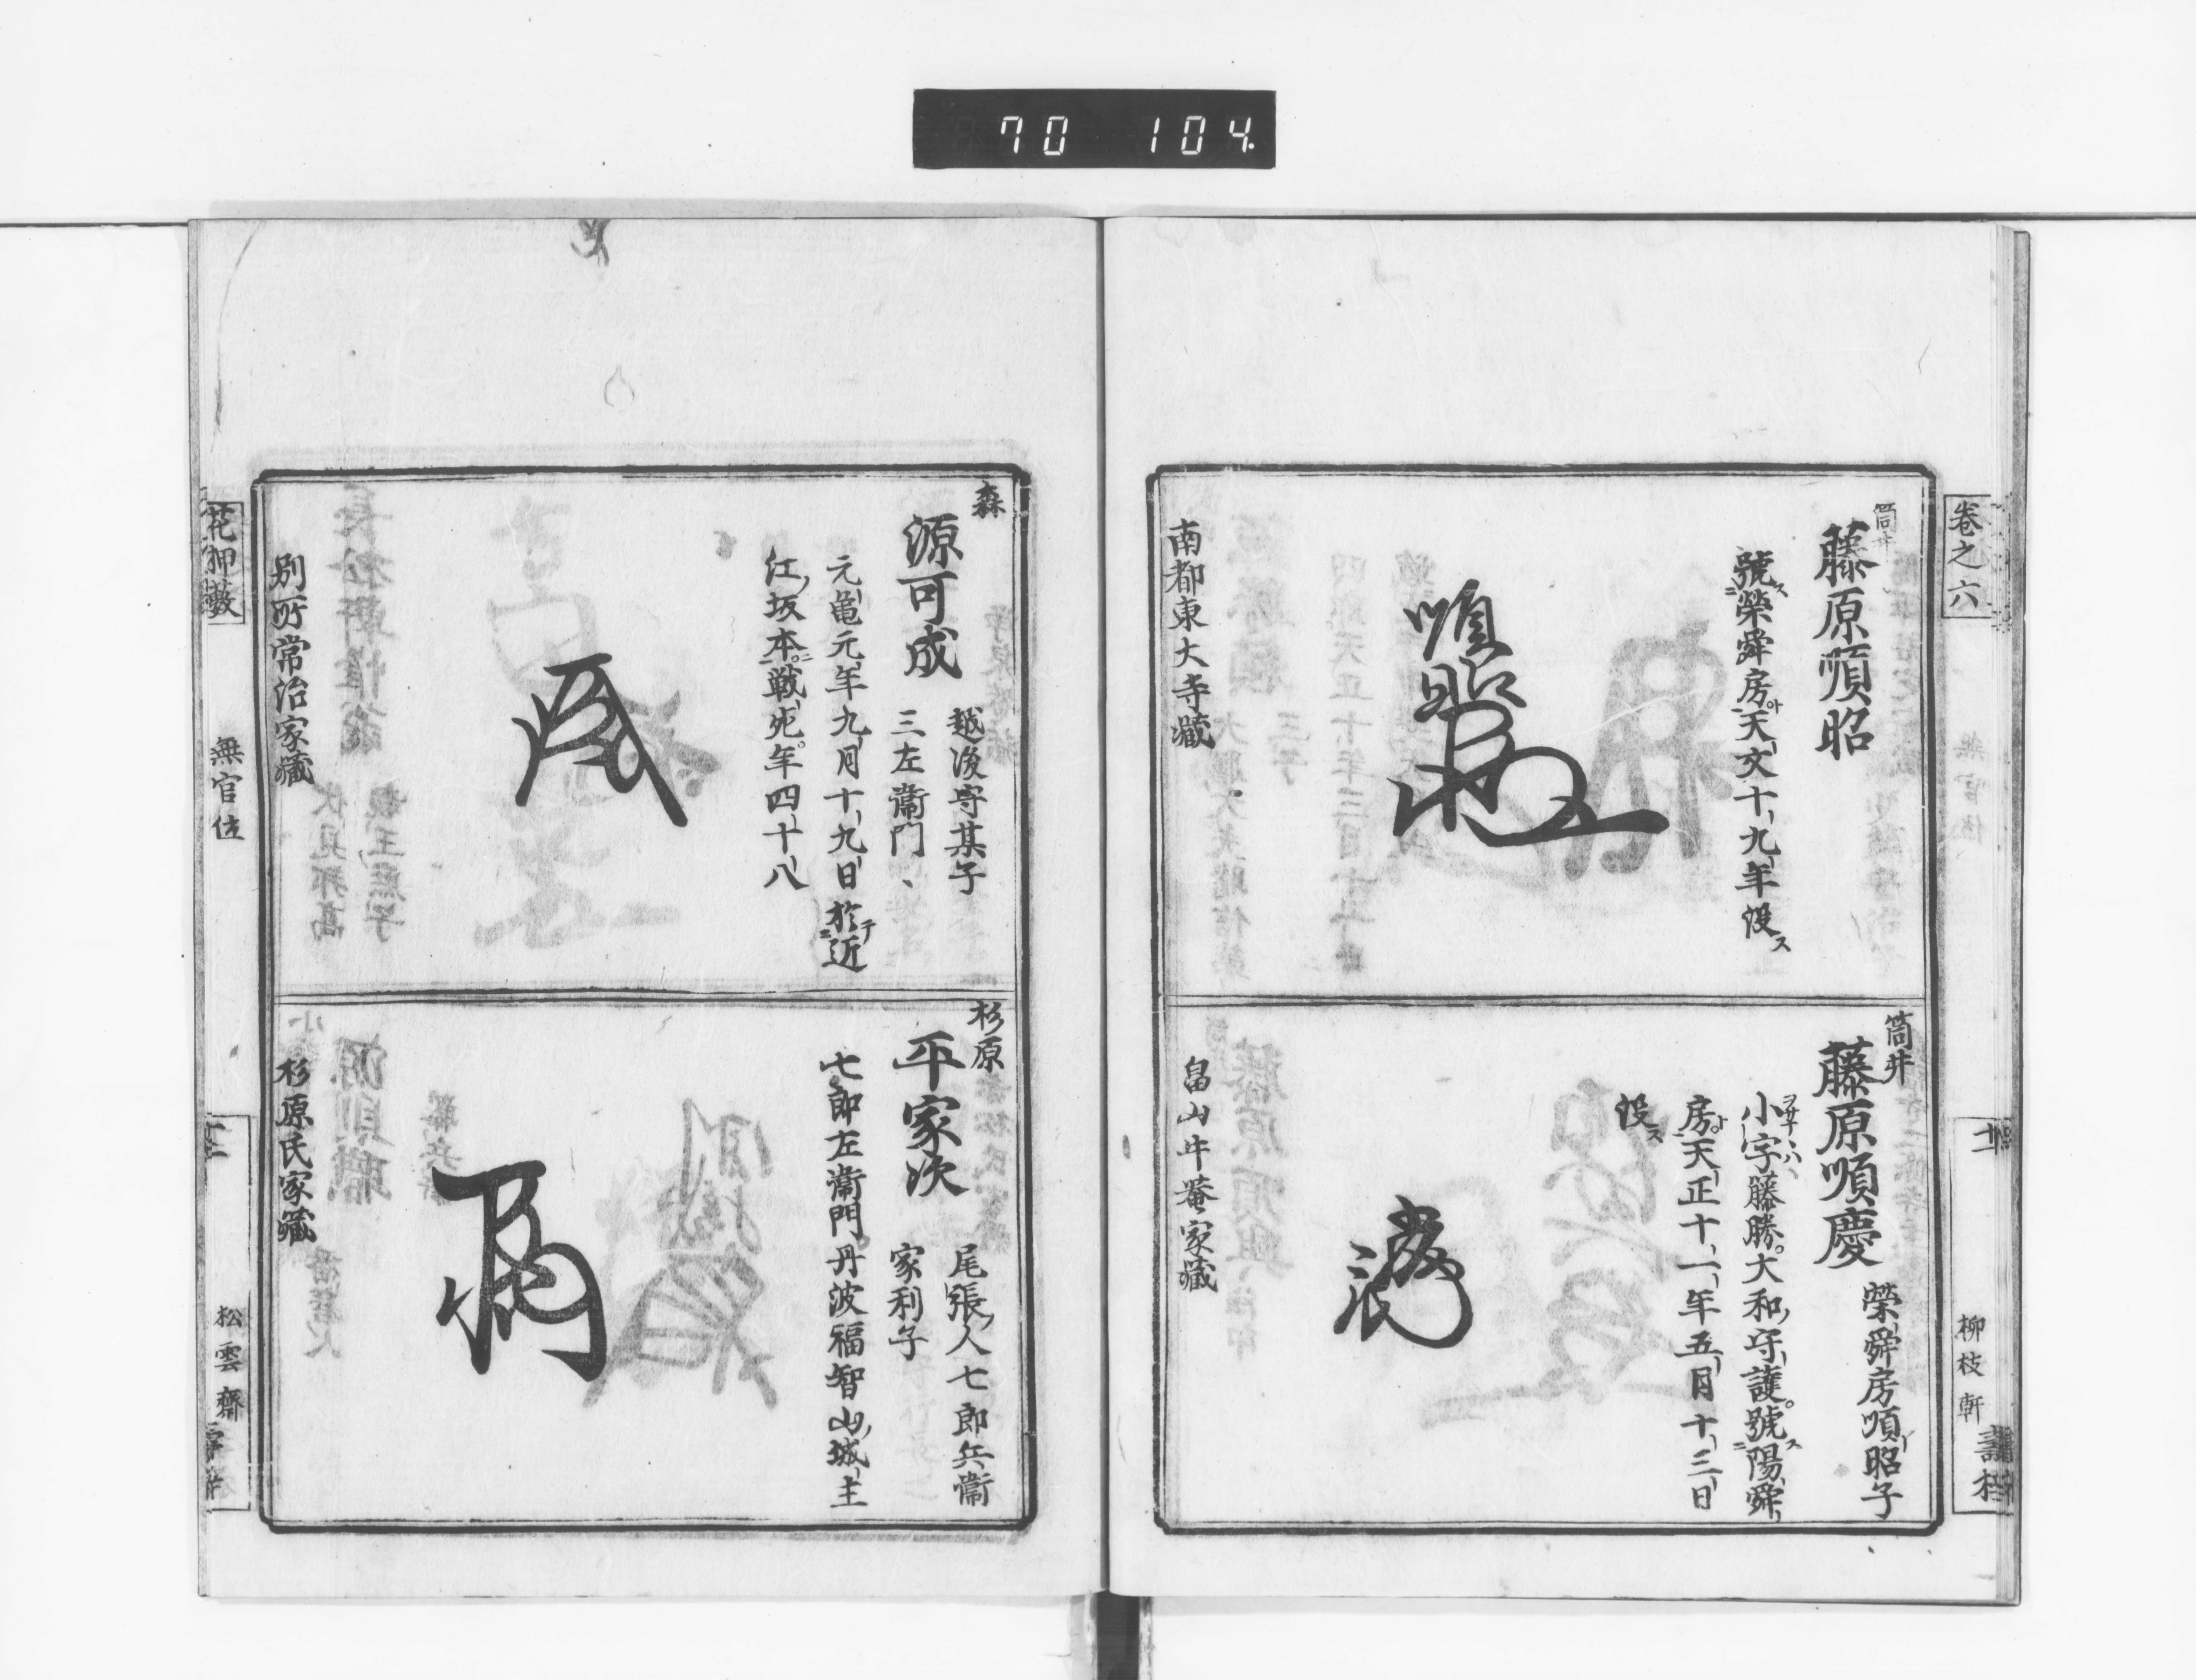 70 104
卷之六
筒井
藤原順昭
號ス榮舜房ト天文十九年沒ス
順昭
南都東大寺藏
筒井
藤原順慶
榮舜房順昭子
小字藤勝大和守護號ス陽舜
房ト天正十一年五月十三日
沒ス
畠山牛菴家藏
柳枝軒
森
源可成
越後守某子
三左衞門
元亀元年九月十九日於テ近
江坂本ニ戦死年四十八
別所常治家藏
杉原
平家次
尾張人七郎兵衞
家利子
七郎左衞門丹波福智山城主
杉原氏家藏
花押藪
無官位
松雲齋